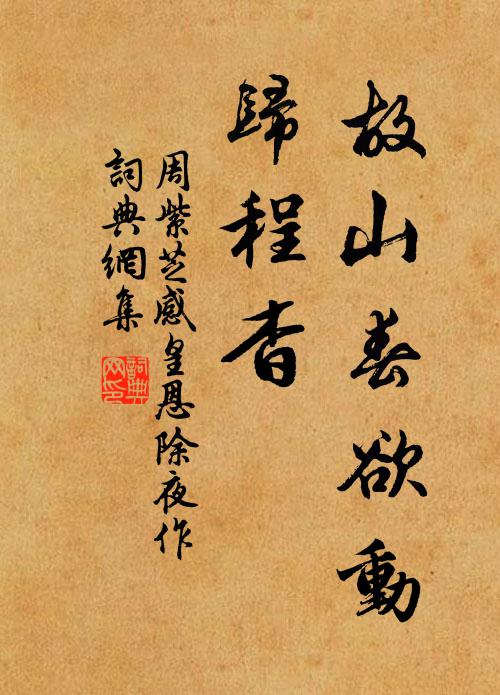 故山春欲動
歸程杳
周紫芝感皇恩除夜作
詞典網集
詞典網印